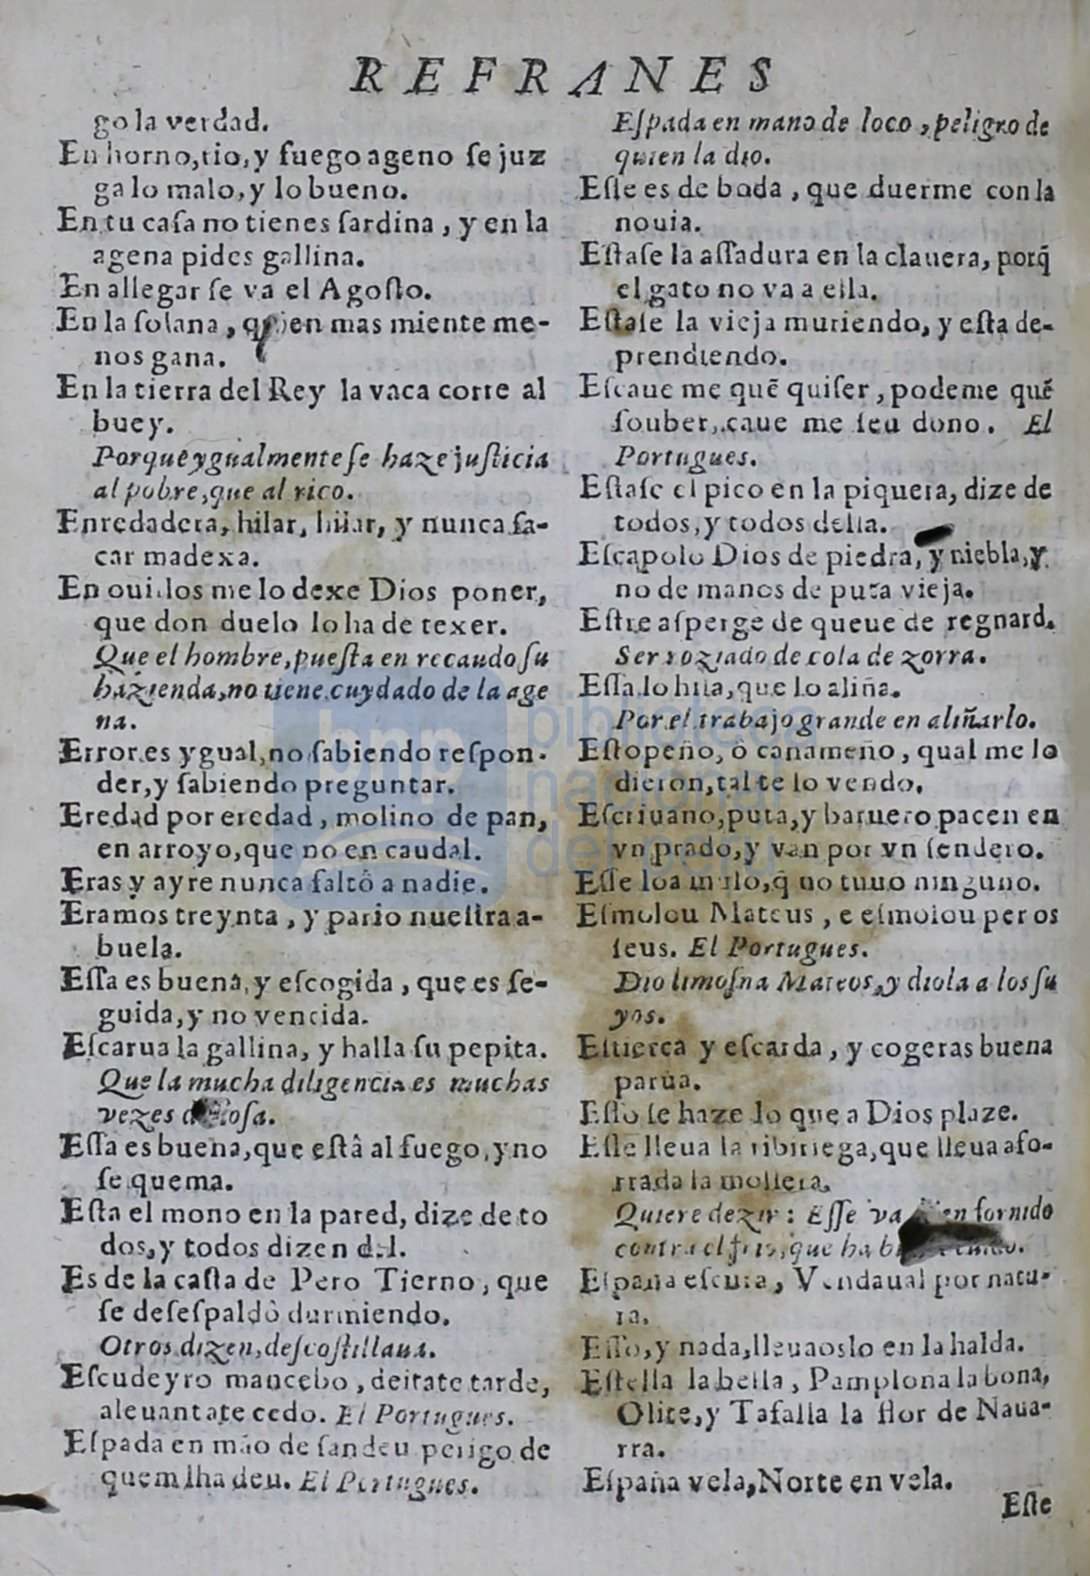 REFRANES
go la verdad.
En horno, rio, y fuego ageno ſe juz
ga lo malo, y lo bueno.
En tu caſa no tienes ſardina, y en la
agena pides gallina.
En allegar ſe va el Agoſto.
En la ſolana, quien mas miente me-
nos gana.
En la tierra del Rey la vaca corre al
buey.
Porque ygualmente ſe haze juſticia
al pobre, que al rico.
Enredadera, hilar, hilar, y nunca ſa-
car madexa.
En ouillos me lo dexe Dios poner,
que don duelo lo ha de texer.
Que el hombre, pueſta en recaudo ſu
hazienda, no tiene cuydado de la age
na.
Error es ygual, no ſabiendo reſpon-
der, y ſabiendo preguntar.
Eredad por eredad, molino de pan,
en arroyo, que no en caudal.
Eras y ayre nunca faltô a nadie.
Eramos treynta, y pario nueſtra a-
buela.
Eſſa es buena, y eſcogida, que es ſe-
guida, y no vencida.
Eſcarua la gallina, y halla ſu pepita.
Que la mucha diligencia es muchas
vezes
Eſſa es buena, que eſtâ al fuego, y no
ſe quema.
Eſta el mono en la pared, dize de to
dos, y todos dizen del.
Es de la caſta de Pero Tierno, que
ſe deſeſpaldò durmiendo.
Otros dizen, deſcoſtillaua.
Eſcudeyro mancebo, deitate tarde,
aleuantate cedo. El Portugues.
Eſpada en mão de ſandeu perigo de
quem lha deu. El Portugues.
Eſpada en mano de loco, peligro de
quien la dio.
Eſſe es de boda, que duerme con la
nouia.
Eſtaſe la aſſadura en la clauera, porq̃
el gato no va a ella.
Eſtaſe la vieja muriendo, y eſta de-
prendiendo.
Eſcaue me quẽ quiſer, podeme quẽ
ſouber, caue me ſeu dono. El
Portugues.
Eſtaſe el pico en la piquera, dize de
todos, y todos della.
Eſcapolo Dios de piedra, y niebla, y
no de manos de puta vieja.
Eſtre aſperge de queue de regnard.
Ser roziado de cola de zorra.
Eſſa lo hila, que lo aliña.
Por el trabajo grande en aliñarlo.
Eſtopeño, ò cañameño, qual me lo
dieron, tal te lo vendo.
Eſcriuano, puta, y baruero pacen en
vn prado, y van por vn ſendero.
Eſſe loa mſlo, q̃ no tuuo ninguno.
Eſmolou Mateus, e eſmolou per os
ſeus. El Portugues.
Dio limoſna Mateos, y diola a los ſu
yos.
Eſtierca y eſcarda, y cogeras buena
parua.
Eſſo ſe haze lo que a Dios plaze.
Eſſe lleua la ribiriega, que lleua afo-
rrada la mollera.
Quiere dezir: Eſſe va bien fornido
contra el frio, que ha
Eſpaña eſcura, Vendaual por natu-
ra.
Eſſo, y nada, lleuaoslo en la halda.
Eſtella la bella, Pamplona la bona,
Olite, y Tafalla la flor de Naua-
rra.
Eſpaña vela, Norte en vela.
Eſte
bnp
biblioteca
nacional
del perú